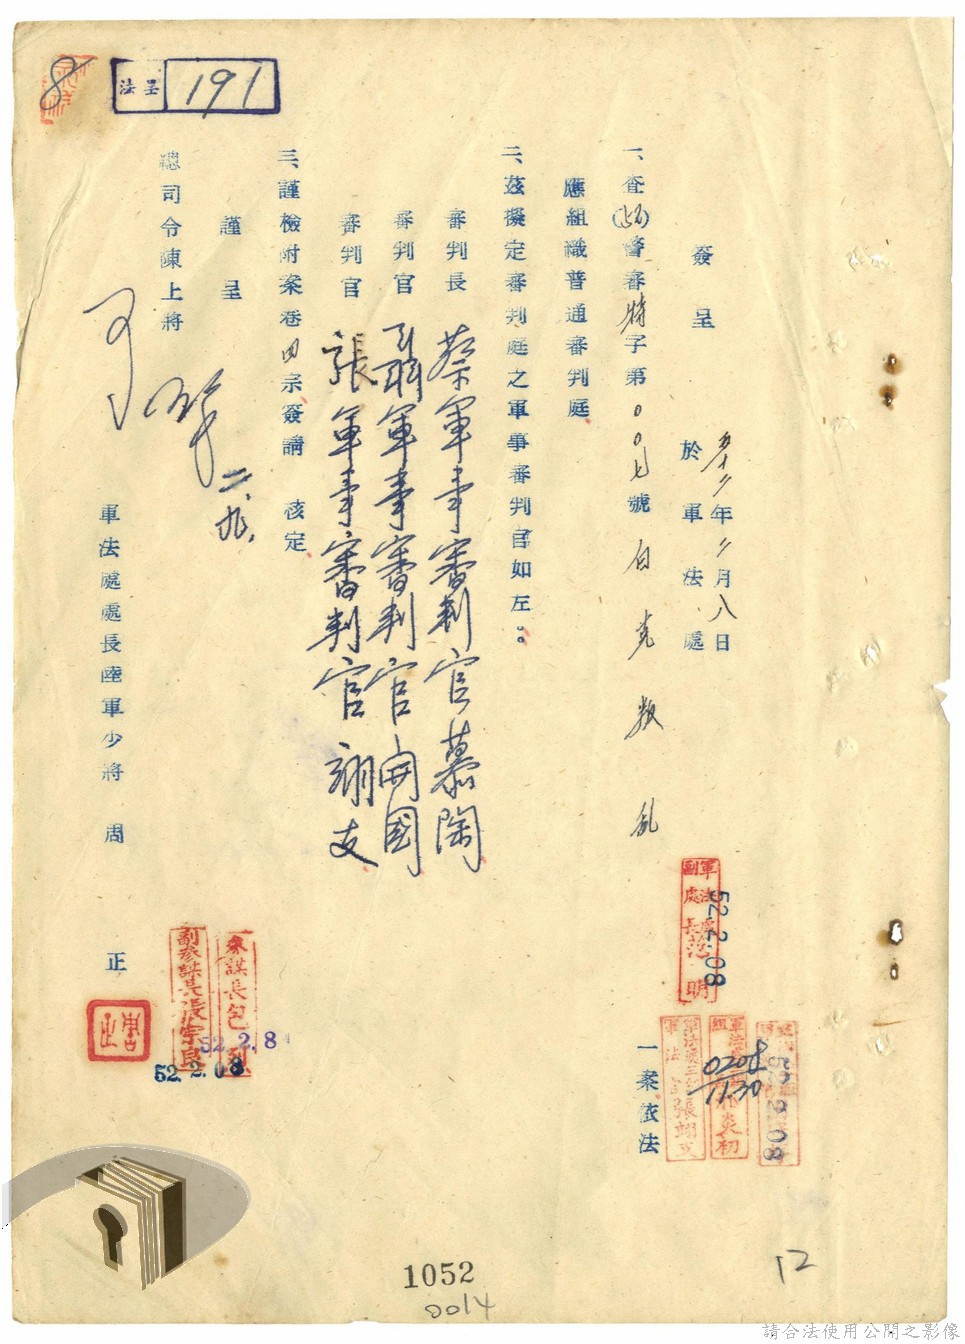 簽呈
五十二年二月八日
於軍法處
一、查(52)警審特字第007號白克叛亂一案依法
應組織普通審判庭
二、茲擬定審判庭之軍事審判官如左：
審判長 蔡軍事審判官慕陶
審判官 聶軍事審判官開國
審判官 張軍事審判官翊支
三、謹檢附案卷四宗簽請 核定
謹呈
總司令陳上將
可
二、九、
軍法處處長陸軍少將周 正
法呈 191
8
軍法處副處長
明
52.2.08
參謀長包烈
52.2.8
副參謀長張宗良
52.2.08
0208
1130
炎初
52.2.08
1052
0014
12
請合法使用公開之影像